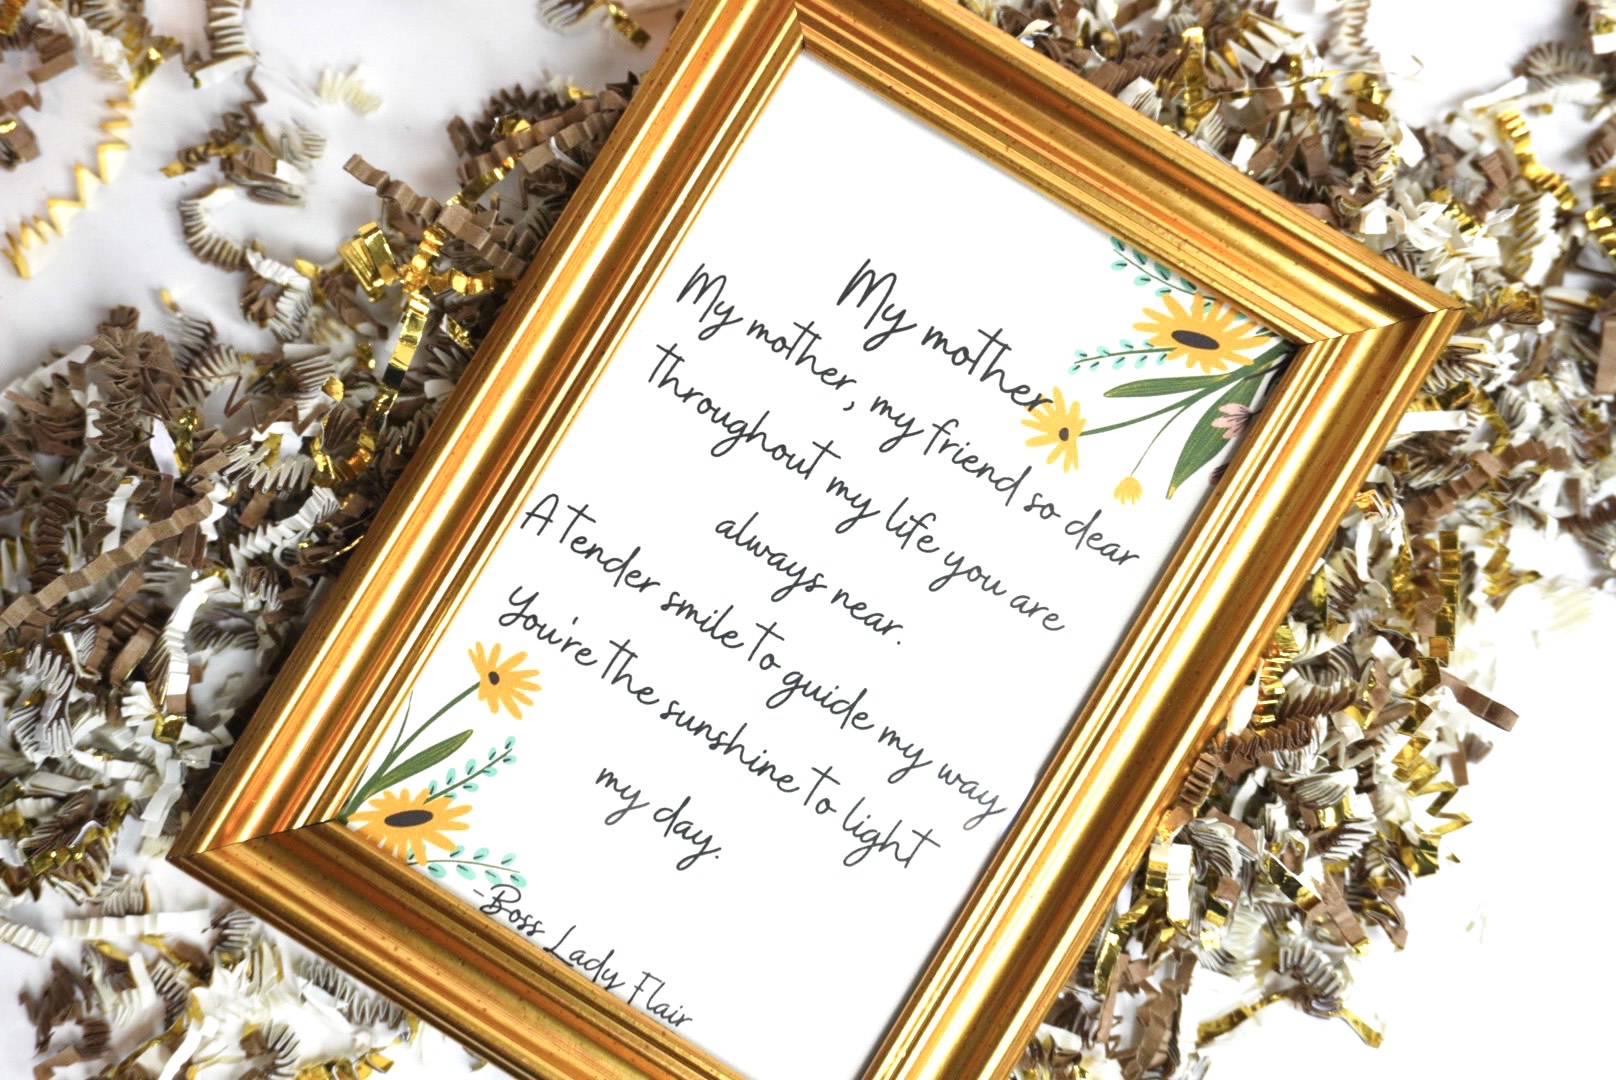 My mother
My mother, my friend so dear
throughout my life you are
always near.
A tender smile to guide my way
You're the sunshine to light
my day.
-Boss Lady Flair